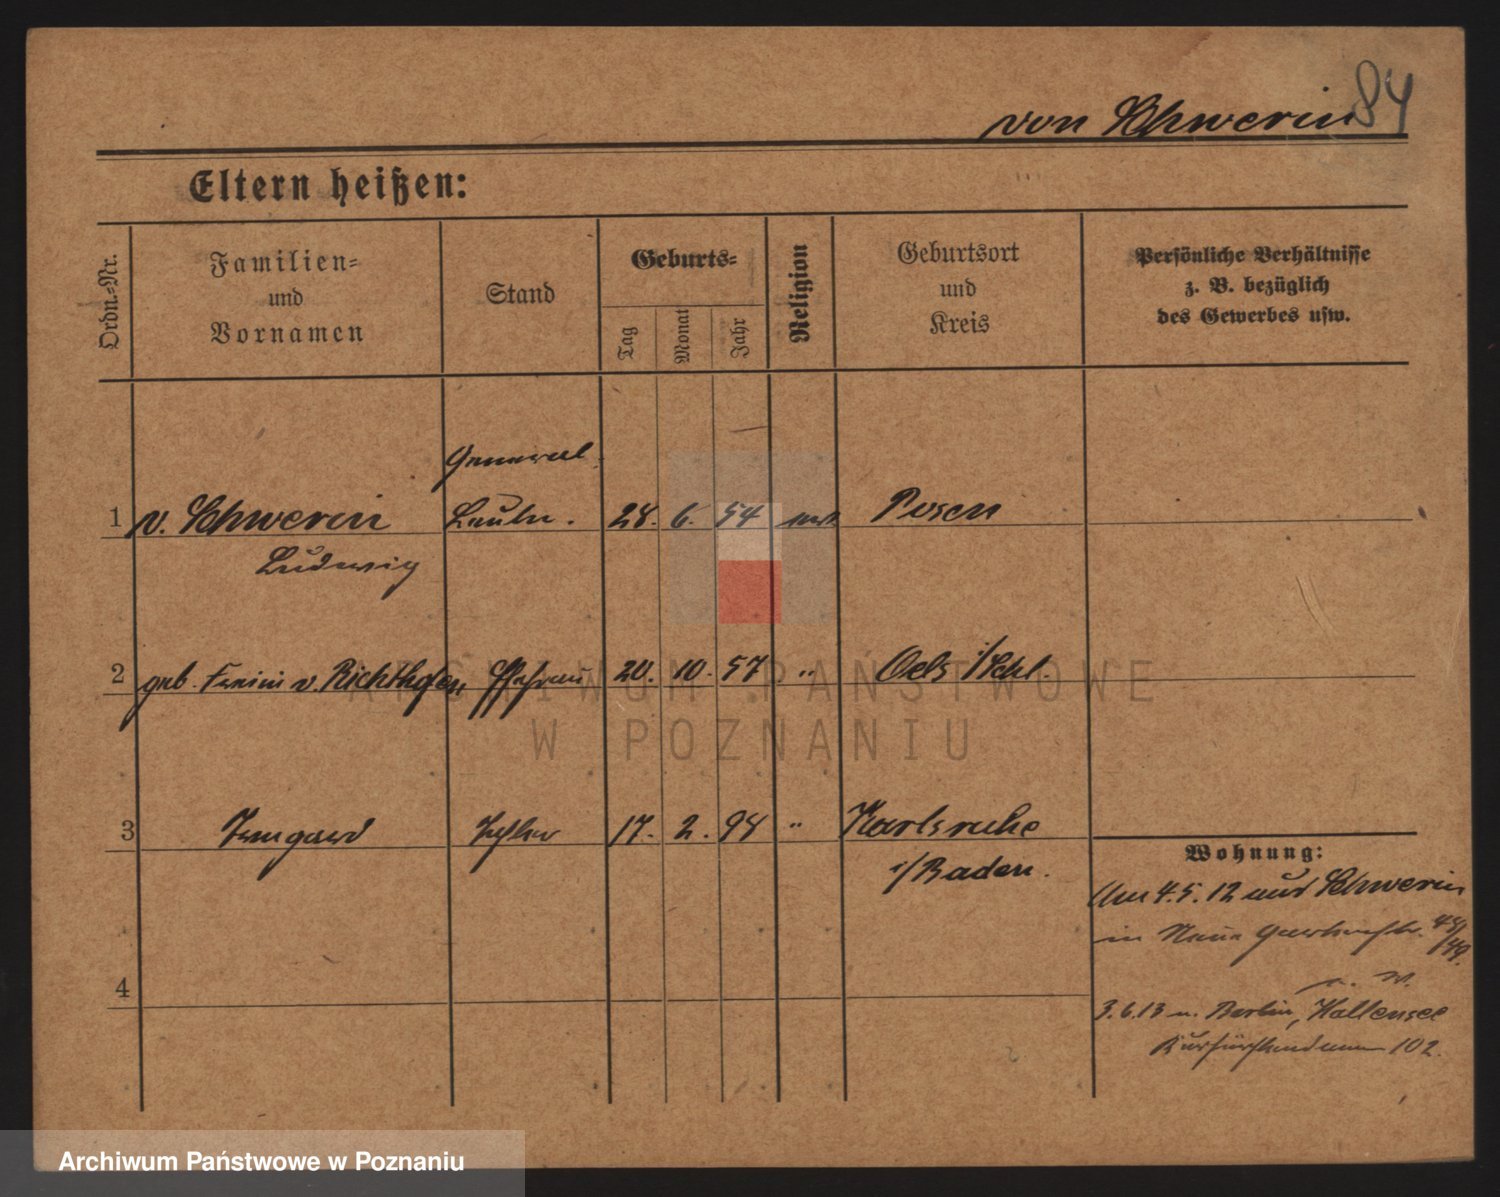 von Schwerin 84
Eltern heißen:
Ordn.-Nr.
Familien-
und
Vornamen
Stand
Geburts-
Tag
Monat
Jahr
Religion
Geburtsort
und
Kreis
Persönliche Verhältnisse
z. B. bezüglich
des Gewerbes usw.
General
1 v. Schwerin Leutn. 28. 6. 54 Posen
Ludwig
2 geb. Freiin v. Richthofen Ehefrau 20. 10. 57 " Oels i/Schl.
3 Irmgard 17. 2. 98 " Karlsruhe
i/Baden.
4
Wohnung:
Am 4.5.12 aus Schwerin
in Neue Gartenstr. 48/49.
3.6.13 n. Berlin, Hallensee
Kurfürstendamm 102.
ARCHIWUM PAŃSTWOWE
W POZNANIU
Archiwum Państwowe w Poznaniu